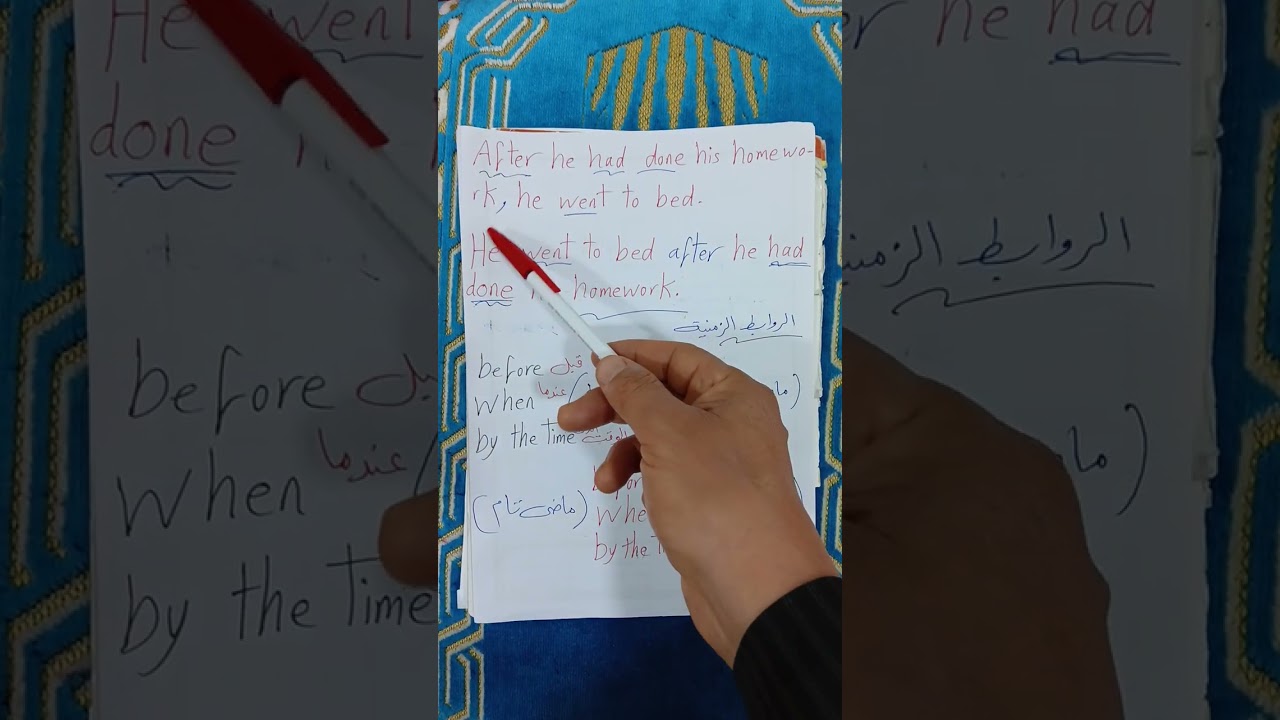 After he had done his homewo-
rk, he went to bed.
He went to bed after he had
done homework.
الروابط الزمنية
before قبل
When عندما (
by the Time الوقت
(ماضى تام) Whe
by the T